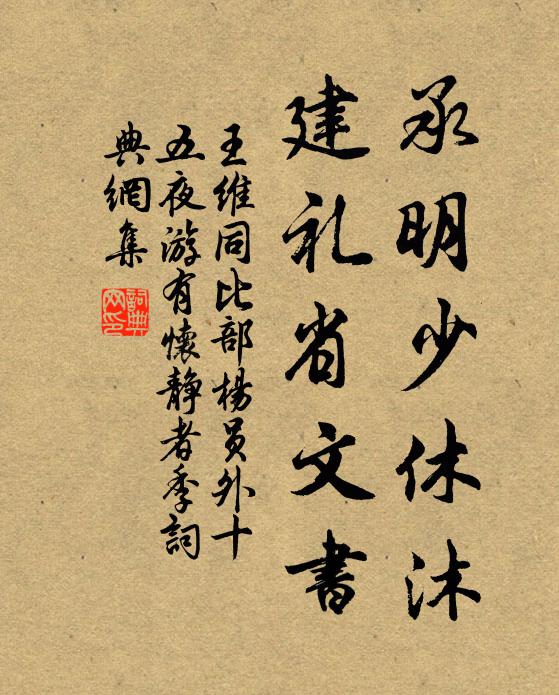 承明少休沐
建礼省文書
王維同比部楊员外十
五夜游有懷靜者季詞
典網集
詞典网印